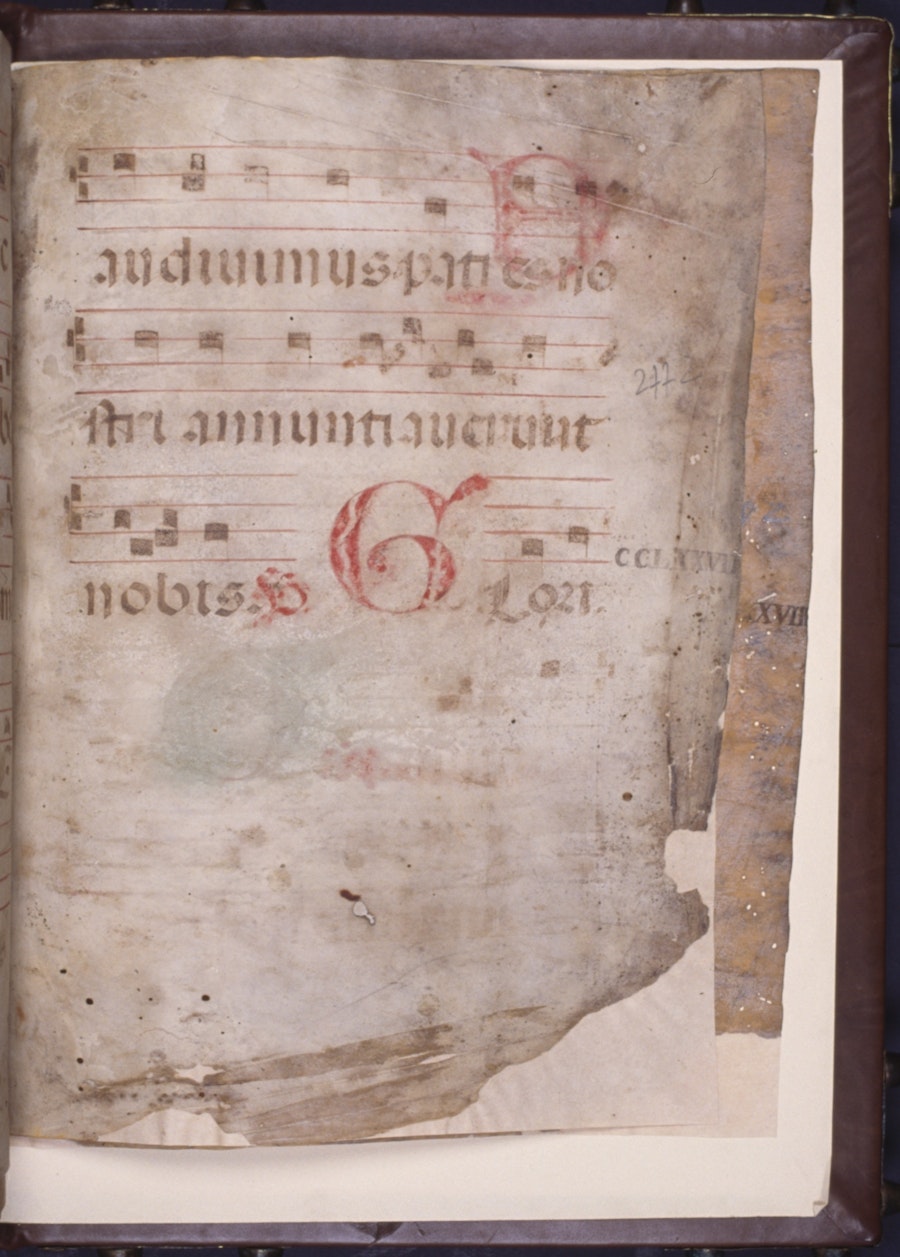 audiuimus·patres no
stri annuntiauerunt
nobis. 
277
G Lori.
CCLXXVII
XVII